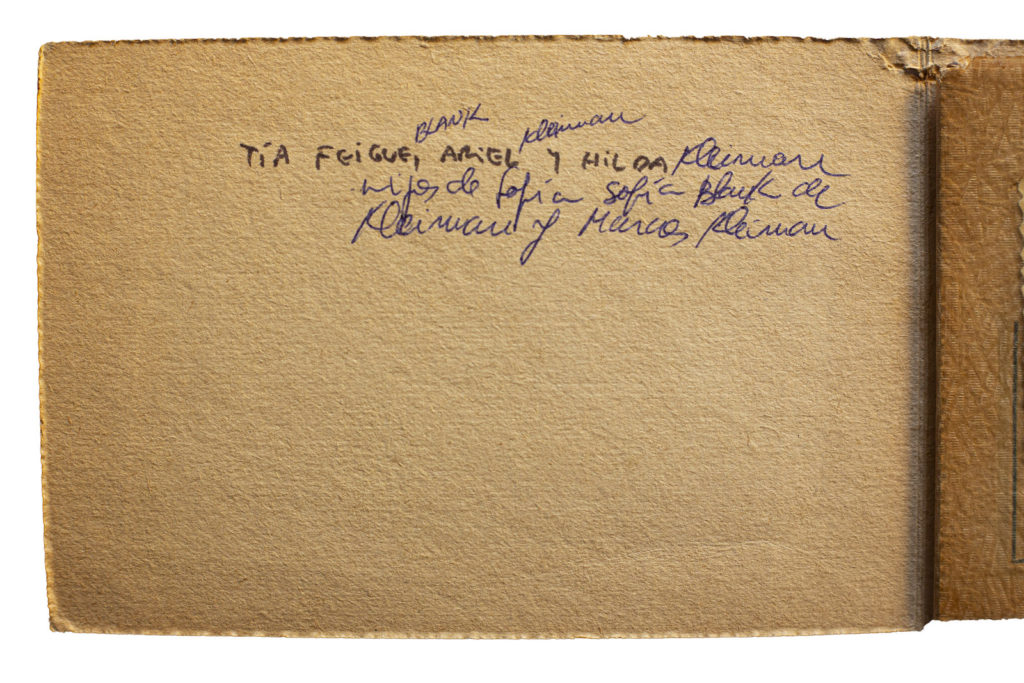 BLANK Kleiman
TÍA FEIGUE, ARIEL Y HILDA Kleiman
hijos de Sofía Sofía Blank de
Kleiman y Marcos Kleiman